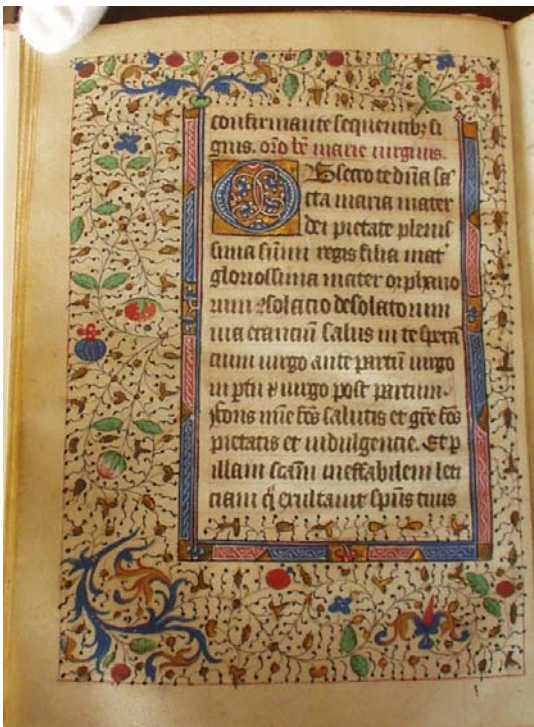 confirmante sequentib; si
gnis. oro bē marie uirginis.
Obsecro te dn̄a sā
cta maria mater
dei pietate plenis
sima sūmi regis filia mat᾽
gloriosissima mater orphano
rum ɔsolacio desolatorum
uia erranciū salus in te sperā
cium uirgo ante partū uirgo
in ptu ⁊ uirgo post partum.
ffons mīe fōs salutis et grē fōs
pietatis et indulgencie. Et p
illam scām ineffabilem leti
ciam q̄ exultauit spūs tuus